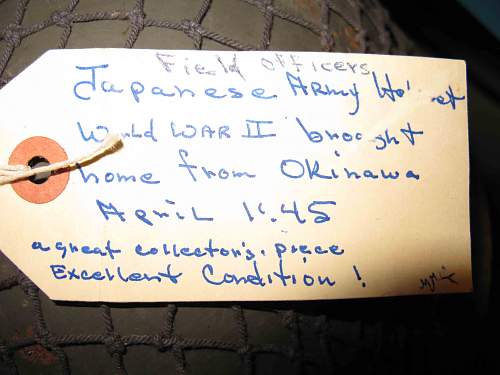 Field officers
Japanese Army
World WAR II brought
home from Okinawa
April 1945
a great collector's piece
Excellent Condition !